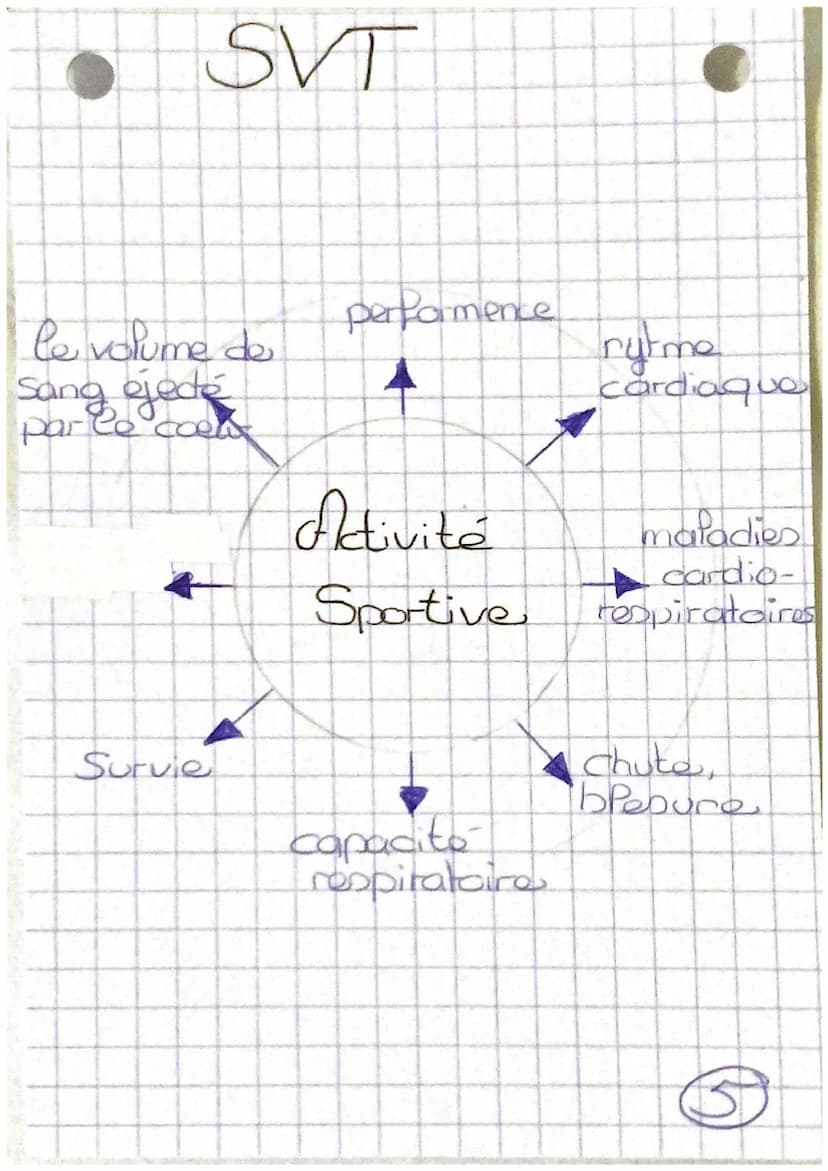 SVT
performence
le volume de
sang éjecté
par le coeur
rytme
cardiaque
Activité
Sportive
maladies
cardio-
respiratoires
Survie
chute,
blebure
capacité
respiratoire
5